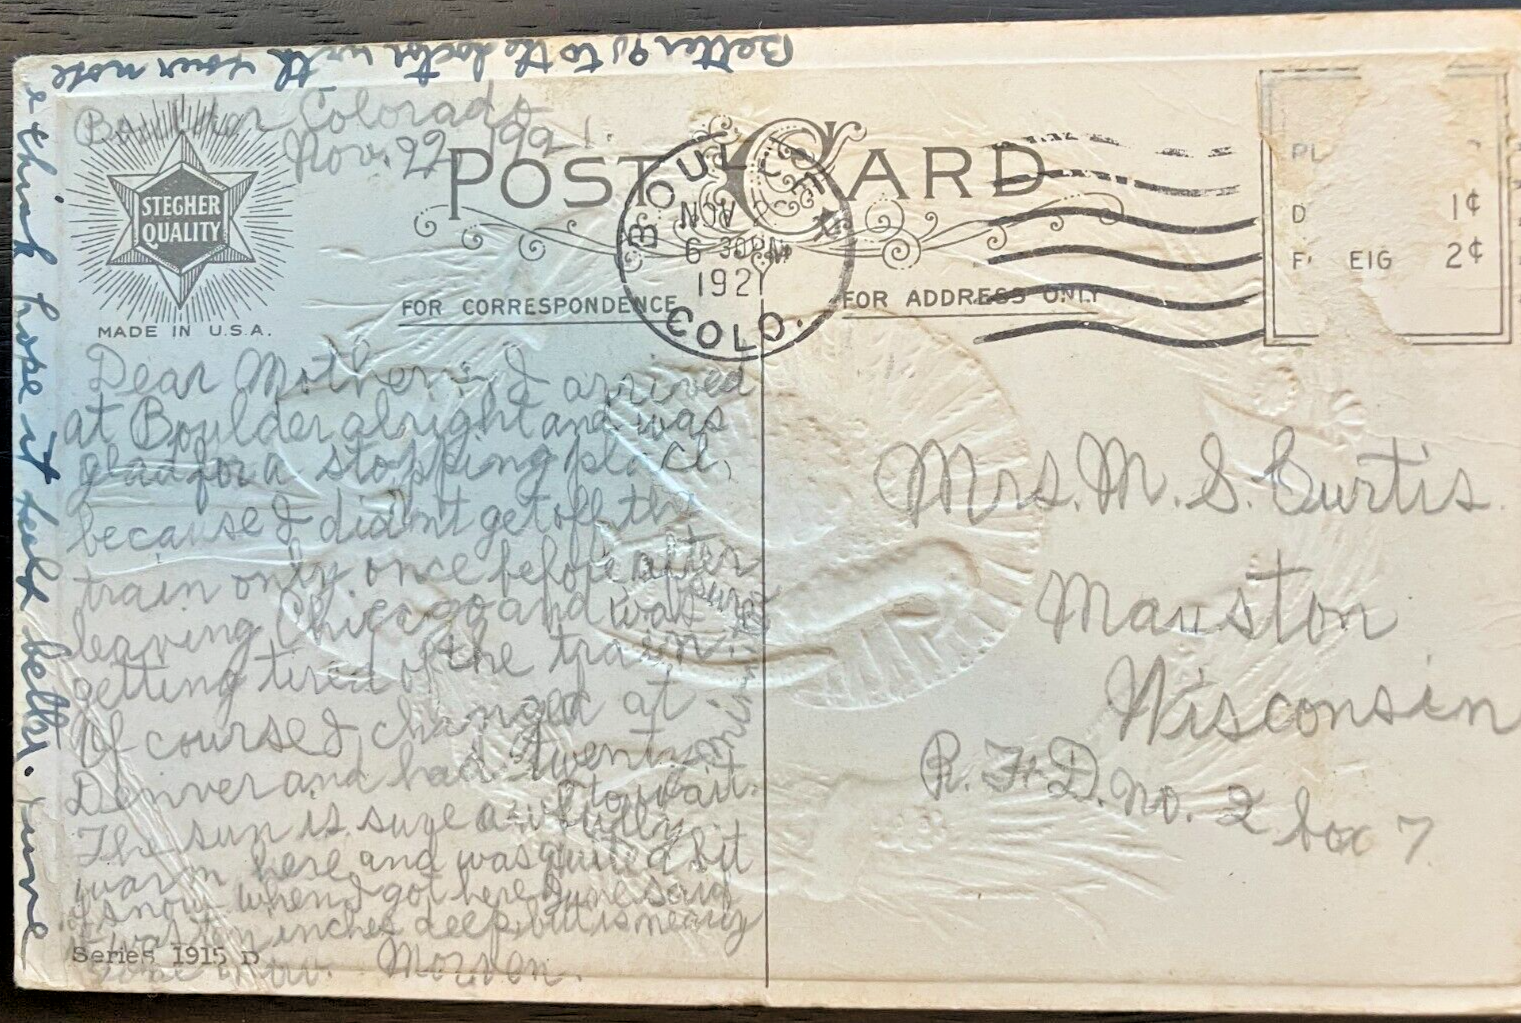 Better go to the doctor with your nose
& think hope it feels better. June
Boulder Colorado
Nov. 22 1921.
POST CARD
STEGHER
QUALITY
MADE IN U.S.A.
FOR CORRESPONDENCE
FOR ADDRESS ONLY
BOULDER
NOV
6 30PM
1921
COLO.
PL
D 1¢
F EIG 2¢
Dear Mother:- I arrived
at Boulder alright and was
glad for a stopping place,
because I didn't get off the
train only once before after
leaving Chicago and was
getting tired of the train.
Of course I changed at
Denver and had twenty
to wait.
The sun is sure awfully
warm here and was quite a bit
of snow when I got here June said
it was ten inches deep, but is nearly
gone now. Morven.
Series 1915 D
Mrs. M. S. Curtis.
Mauston
Wisconsin
R. F. D. No. 2 box 7